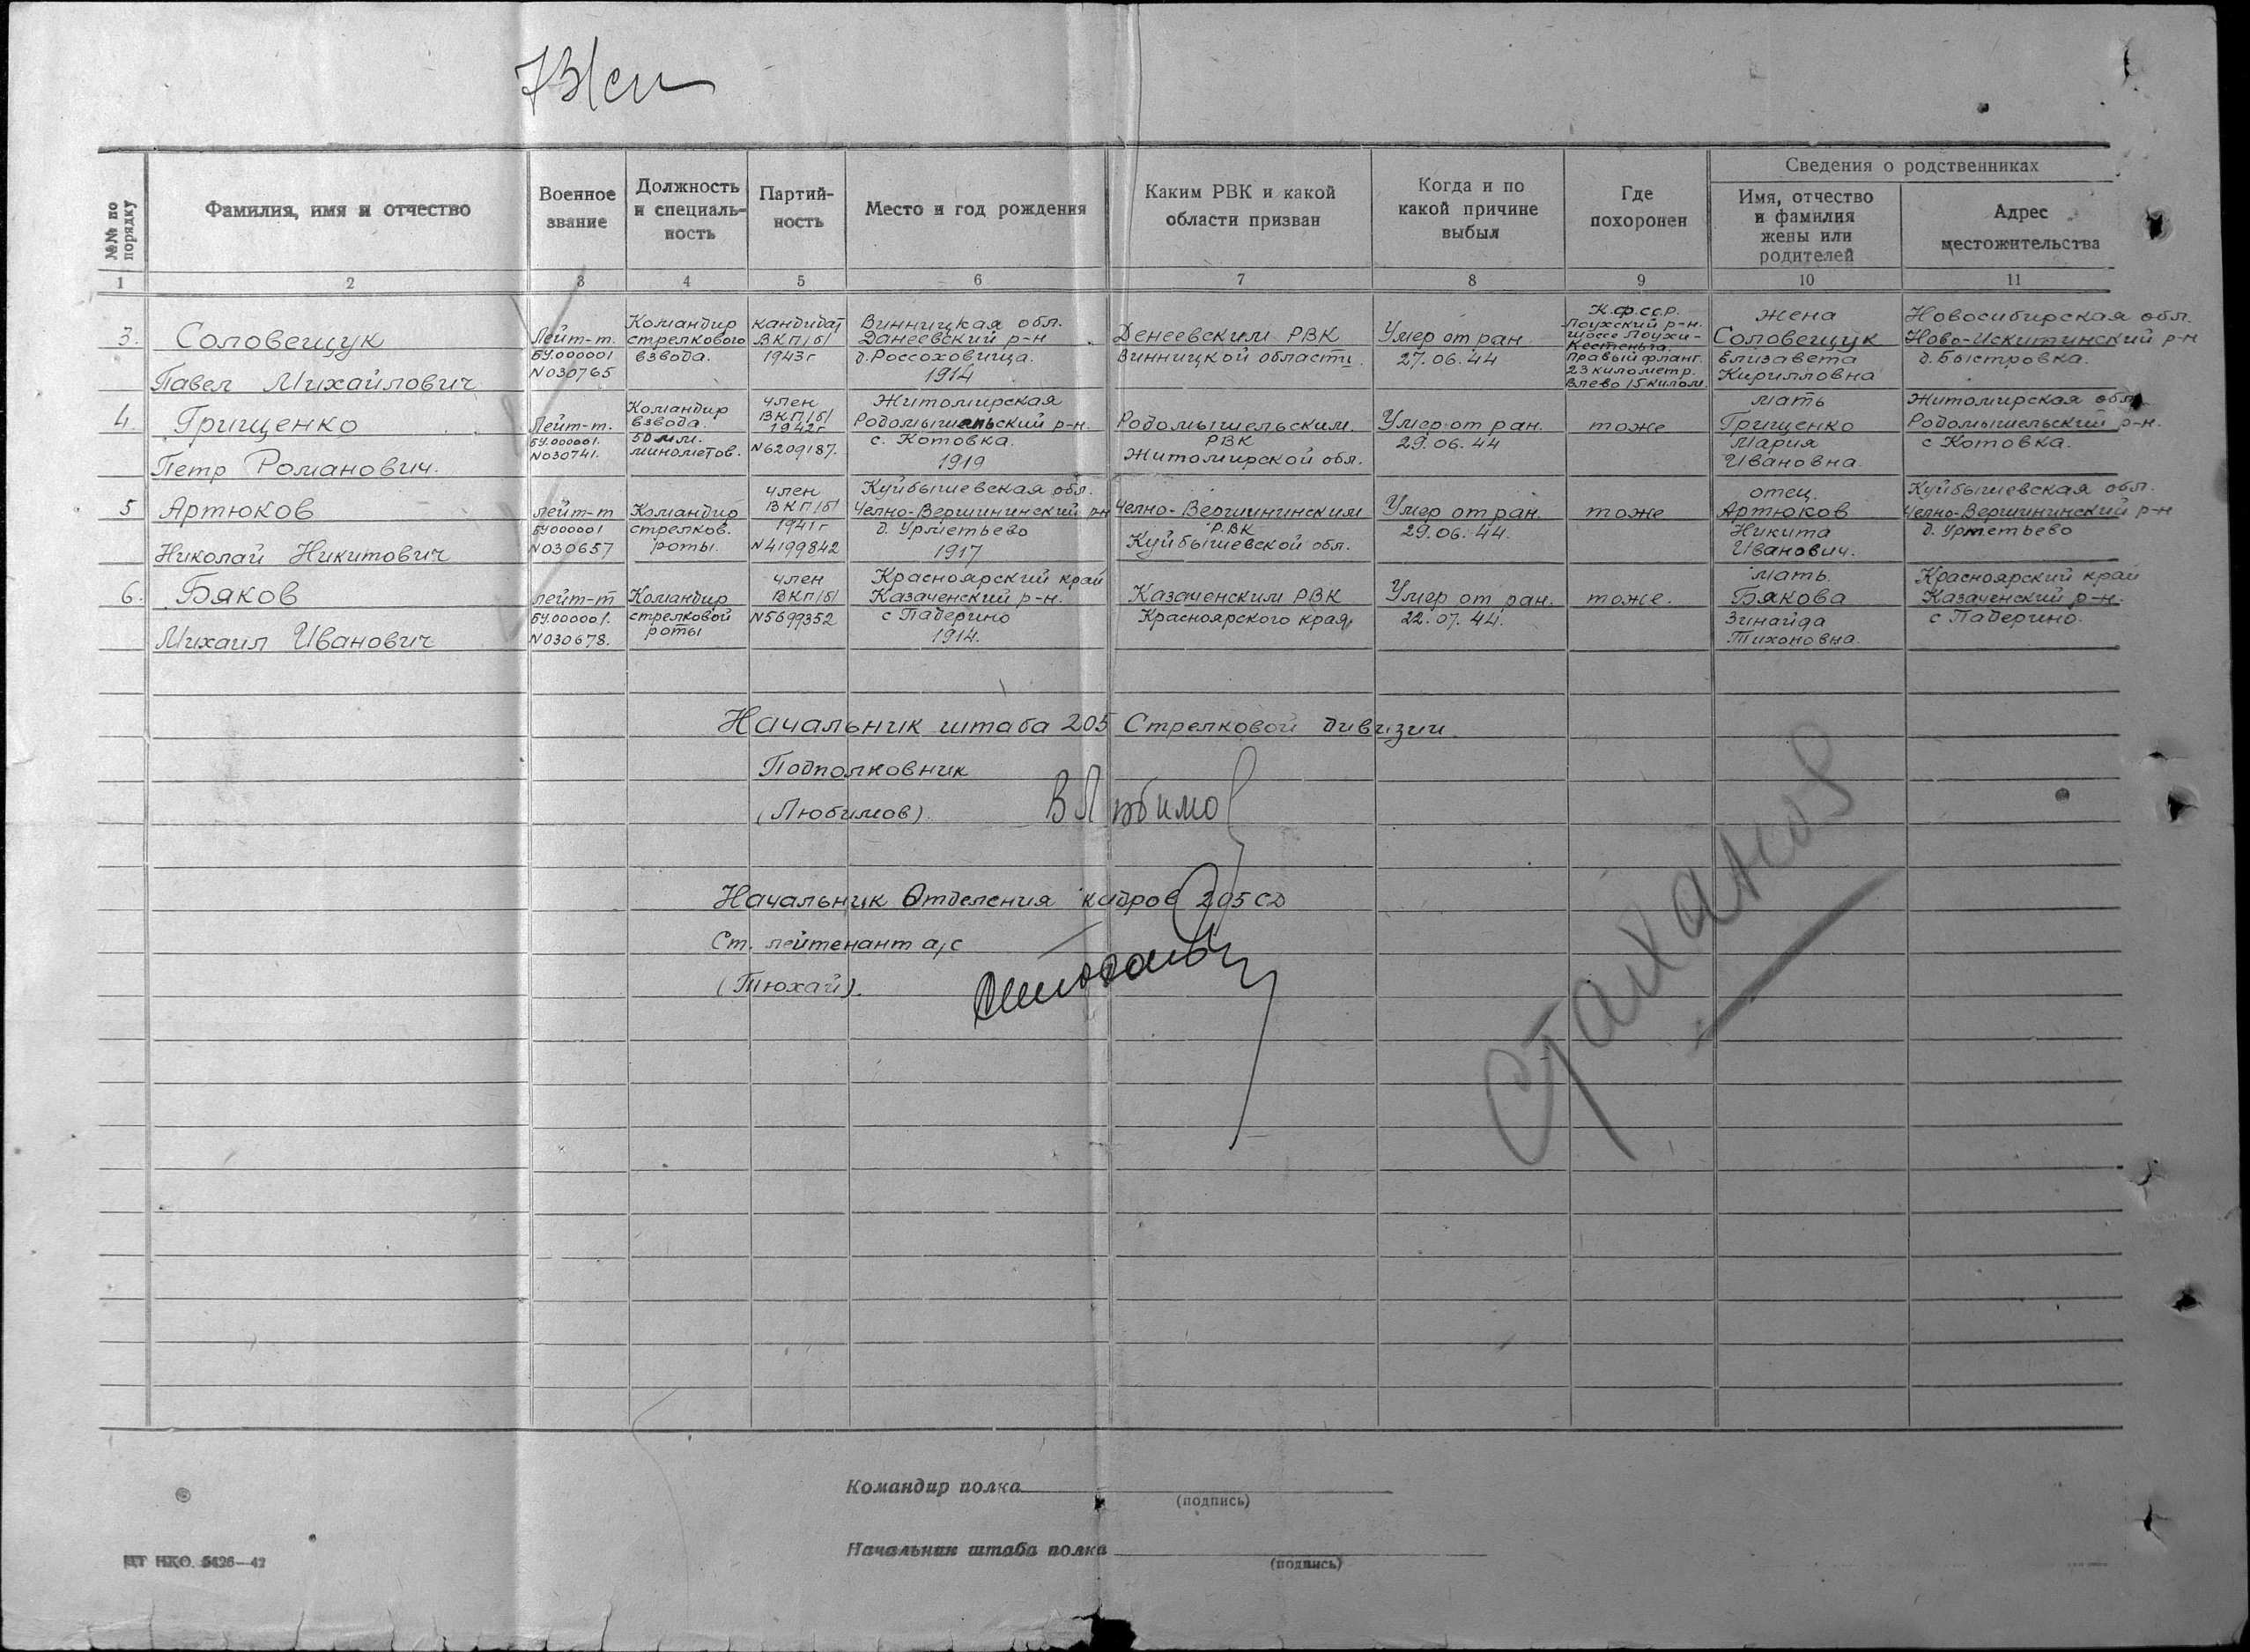 №№ по порядку
Фамилия, имя и отчество
Военное звание
Должность и специаль-ность
Партий-ность
Место и год рождения
Каким РВК и какой области призван
Когда и по какой причине выбыл
Где похоронен
Сведения о родственниках
Имя, отчество и фамилия жены или родителей
Адрес местожительства
1 2 3 4 5 6 7 8 9 10 11
3.
Соловещук
Павел Михайлович
Лейт-т.
БУ.000001
N030765
Командир
стрелкового
взвода.
кандидат
ВКП/б/
1943г
Винницкая обл.
Данеевский р-н
д.Россоховища.
1914
Денеевским РВК
Винницкой области.
Умер от ран
27.06.44
К.ф.сс.р.
Лоухский р-н.
шоссе Лоухи-
Кестеньга
правый фланг.
23 километр.
Влево 15 килом.
жена
Соловещук
Елизавета
Кирилловна
Новосибирская обл.
Ново-Искитинский р-н
д.Быстровка.
4.
Грищенко
Петр Романович.
Лейт-т.
БУ.000001.
N030741.
Командир
взвода.
50 мм.
минометов.
член
ВКП/б/
1942г
N6209187.
Житомирская
Родомышельский р-н.
с. Котовка.
1919
Родомышельским
РВК
Житомирской обл.
Умер от ран.
29.06.44
тоже
мать
Грищенко
Мария
Ивановна.
Житомирская обл.
Родомышельский р-н.
с Котовка.
5
Артюков
Николай Никитович
лейт-т
БУ000001
N030657
Командир
стрелков.
роты.
член
ВКП/б/
1941г
N4199842
Куйбышевская обл.
Челно-Вершининский р-н
д. Урметьево
1917
Челно-Вершининским
РВК
Куйбышевской обл.
Умер от ран.
29.06.44.
тоже
отец.
Артюков
Никита
Иванович.
Куйбышевская обл.
Челно-Вершининский р-н
д. Урметьево
6.
Бяков
Михаил Иванович
лейт-т
БУ.000001.
N030678.
Командир
стрелковой
роты
член
ВКП/б/
N5699352
Красноярский край
Казаченский р-н.
с Падерино
1914.
Казаченским РВК
Красноярского края,
Умер от ран.
22.07.44.
тоже.
мать.
Бякова
Зинаида
Тихоновна.
Красноярский край
Казаченский р-н.
с Падерино.
Начальник штаба 205 Стрелковой дивизии.
Подполковник
(Любимов). В Любимов
Начальник Отделения кадров 205 СД
Ст. лейтенант а/с
(Тюхай).
Стаханов
Командир полка
(подпись)
Начальник штаба полка
(подпись)
ЦТ НКО. 5426—42